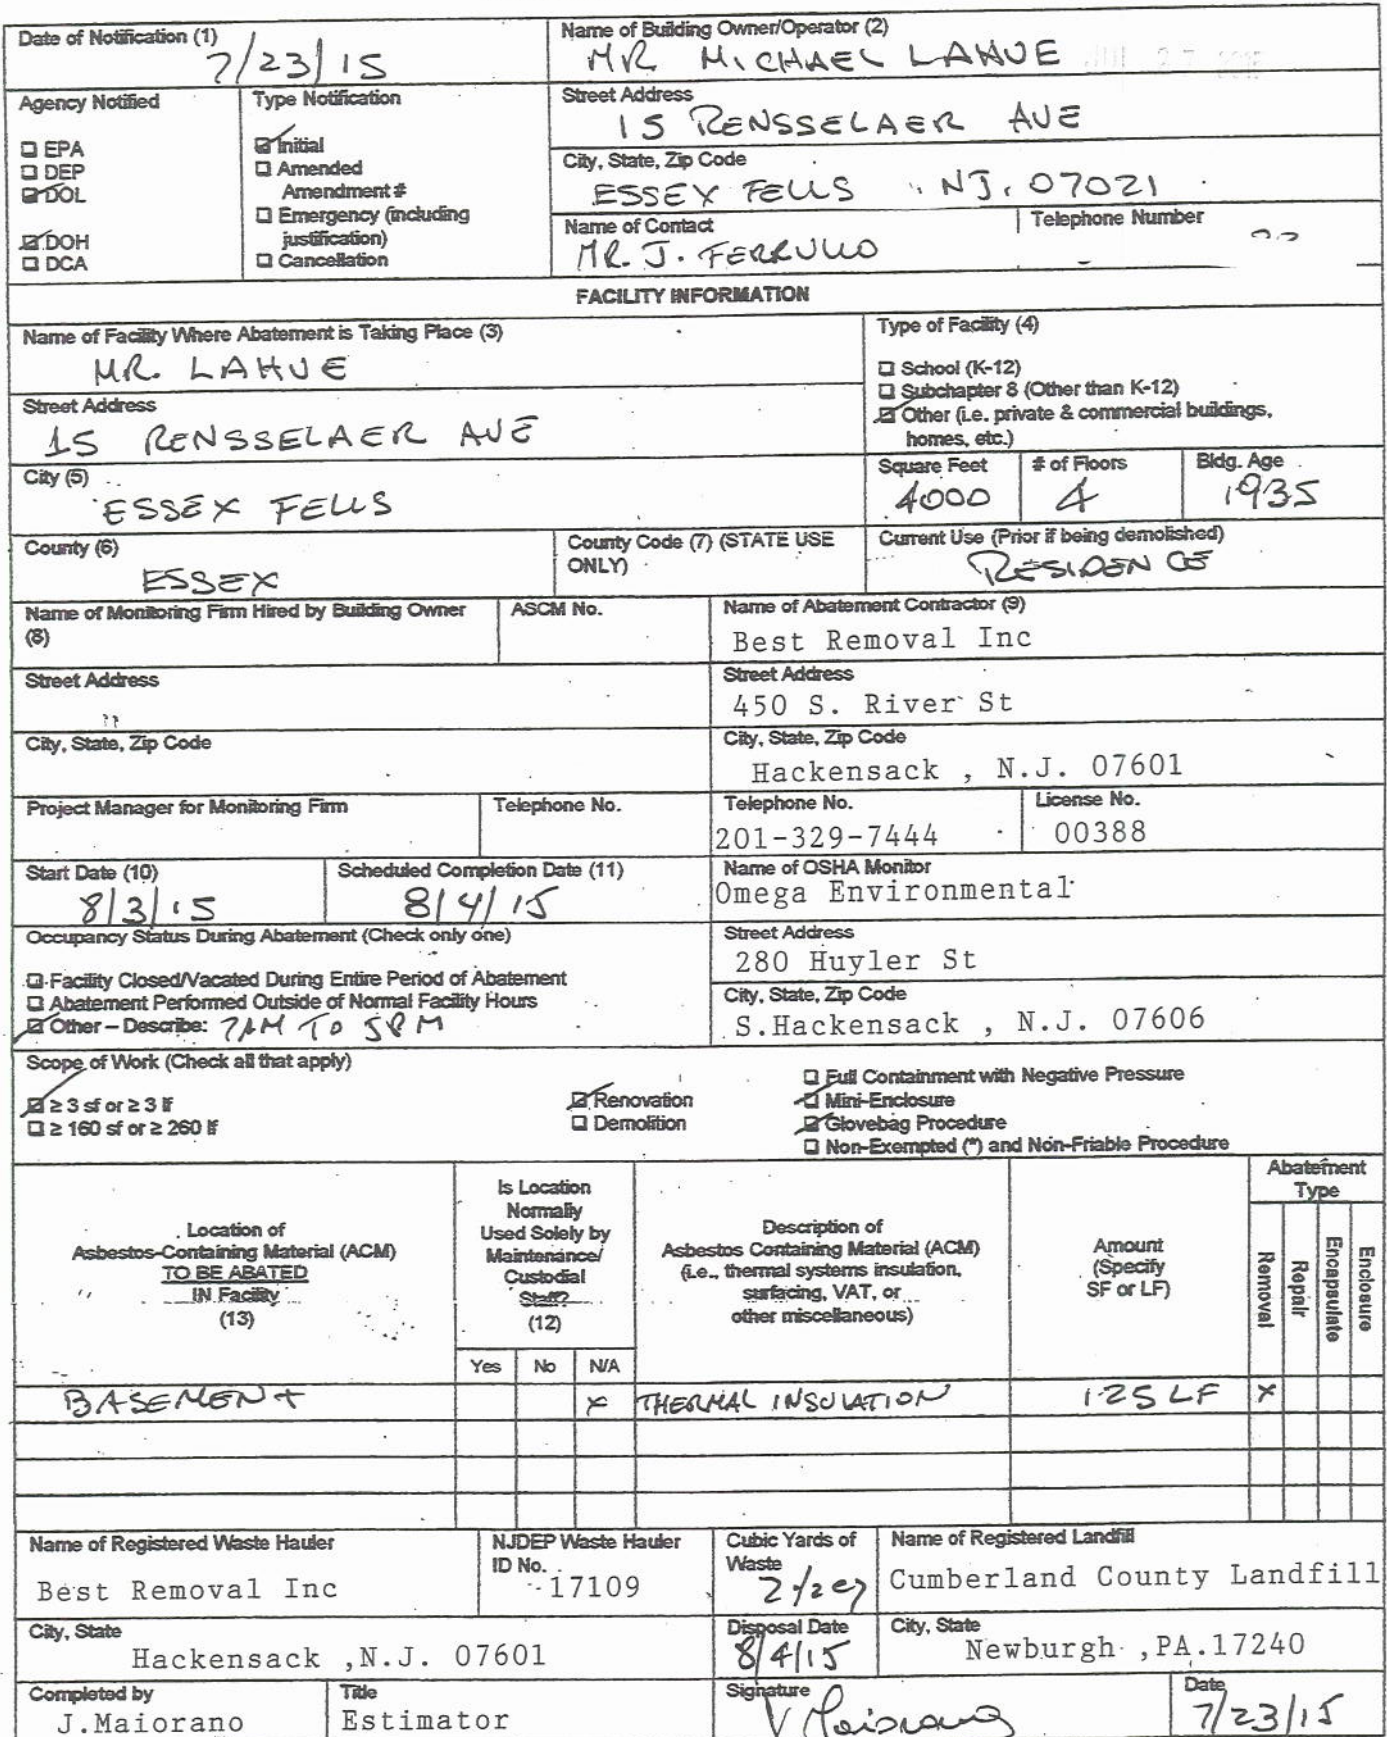 Date of Notification (1)
7/23/15
Name of Building Owner/Operator (2)
MR MICHAEL LAHUE
Agency Notified
EPA
DEP
DOL
DOH
DCA
Type Notification
Initial
Amended
Amendment #
Emergency (including
justification)
Cancellation
Street Address
15 RENSSELAER AVE
City, State, Zip Code
ESSEX FELLS, NJ. 07021
Name of Contact
MR. J. FERRULLO
Telephone Number
FACILITY INFORMATION
Name of Facility Where Abatement is Taking Place (3)
MR. LAHUE
Type of Facility (4)
School (K-12)
Subchapter 8 (Other than K-12)
Other (i.e. private & commercial buildings,
homes, etc.)
Street Address
15 RENSSELAER AVE
City (5)
ESSEX FELLS
Square Feet
4000
# of Floors
4
Bldg. Age
1935
County (6)
ESSEX
County Code (7) (STATE USE
ONLY)
Current Use (Prior if being demolished)
RESIDENCE
Name of Monitoring Firm Hired by Building Owner
(8)
ASCM No.
Name of Abatement Contractor (9)
Best Removal Inc
Street Address
Street Address
450 S. River St
City, State, Zip Code
City, State, Zip Code
Hackensack , N.J. 07601
Project Manager for Monitoring Firm
Telephone No.
Telephone No.
201-329-7444
License No.
00388
Start Date (10)
8/3/15
Scheduled Completion Date (11)
8/4/15
Name of OSHA Monitor
Omega Environmental
Occupancy Status During Abatement (Check only one)
Facility Closed/Vacated During Entire Period of Abatement
Abatement Performed Outside of Normal Facility Hours
Other – Describe: 7AM TO 5PM
Street Address
280 Huyler St
City, State, Zip Code
S.Hackensack , N.J. 07606
Scope of Work (Check all that apply)
≥ 3 sf or ≥ 3 lf
≥ 160 sf or ≥ 260 lf
Renovation
Demolition
Full Containment with Negative Pressure
Mini-Enclosure
Glovebag Procedure
Non-Exempted (*) and Non-Friable Procedure
Location of
Asbestos-Containing Material (ACM)
TO BE ABATED
IN Facility
(13)
Is Location
Normally
Used Solely by
Maintenance/
Custodial
Staff?
(12)
Yes No N/A
Description of
Asbestos Containing Material (ACM)
(i.e., thermal systems insulation,
surfacing, VAT, or
other miscellaneous)
Amount
(Specify
SF or LF)
Abatement
Type
Removal
Repair
Encapsulate
Enclosure
BASEMENT x THERMAL INSULATION 125 LF x
Name of Registered Waste Hauler
Best Removal Inc
NJDEP Waste Hauler
ID No.
17109
Cubic Yards of
Waste
Name of Registered Landfill
Cumberland County Landfill
City, State
Hackensack ,N.J. 07601
Disposal Date
8/4/15
City, State
Newburgh ,PA.17240
Completed by
J.Maiorano
Title
Estimator
Signature
Date
7/23/15